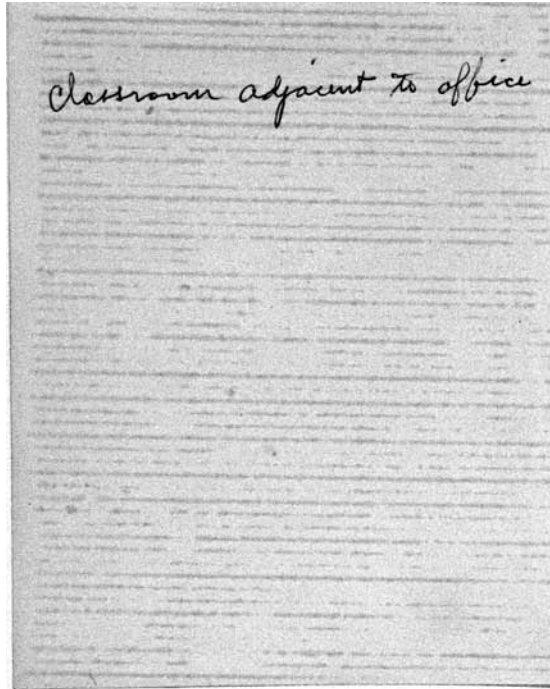 Classroom adjacent to office